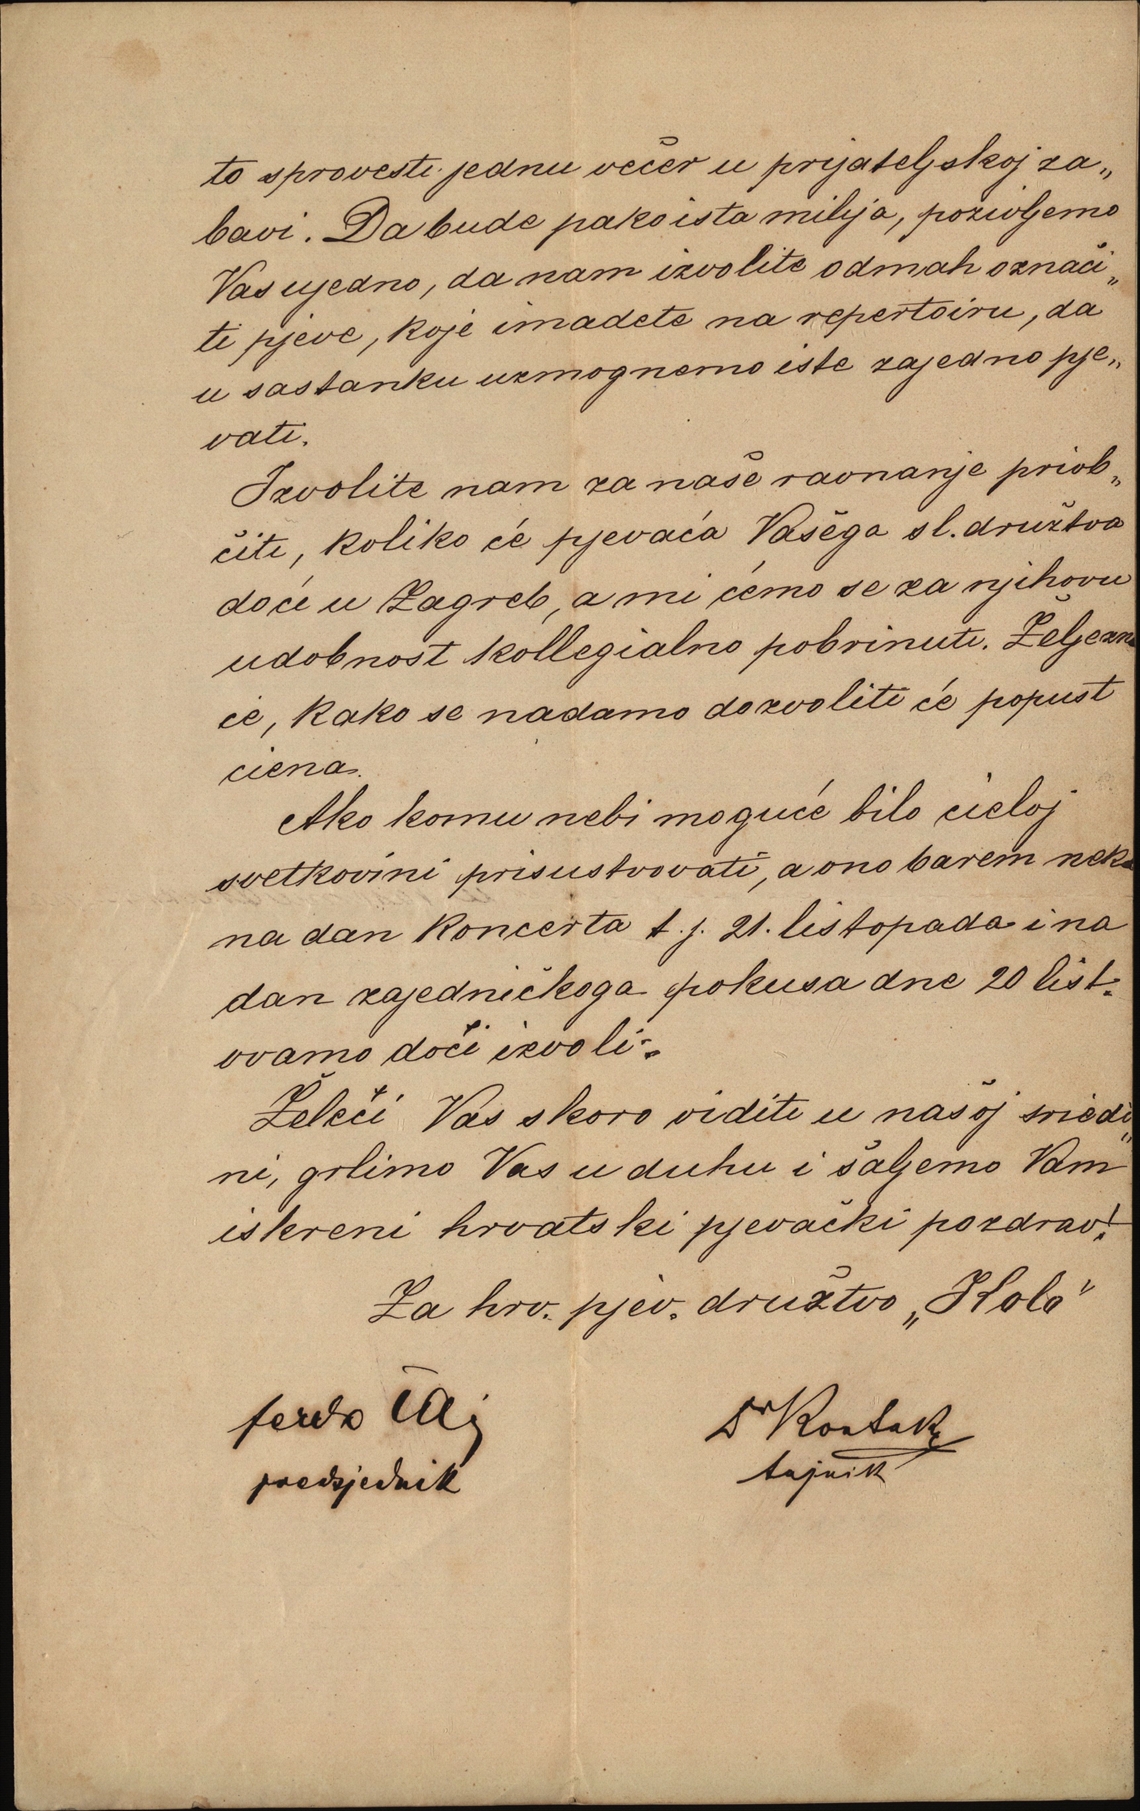 to sprovesti jednu večer u prijateljskoj za„
bavi. Da bude pako ista milija, pozivljemo
Vas ujedno, da nam izvolite odmah označi„
ti pjeve, koje imadete na repertoiru, da
u sastanku uzmognemo iste zajedno pje„
vati.
Izvolite nam za naše ravnanje priob„
čiti, koliko će pjevača Vašega sl. družtva
doći u Zagreb, a mi ćemo se za njihovu
udobnost kollegialno pobrinuti. Željezni
ce, kako se nadamo dozvoliti će popust
ciena.
Ako komu nebi moguće bilo cieloj
svetkovini prisustvovati, a ono barem neka
na dan koncerta t. j. 21. listopada i na
dan zajedničkoga pokusa dne 20 list.
ovamo doći izvoli.
Želeći Vas skoro viditi u našoj sriedi„
ni, grlimo Vas u duhu i šaljemo Vam
iskreni hrvatski pjevački pozdrav!
Za hrv. pjev. družtvo „Kolo"
ferdo
Dr
predsjednik
tajnik